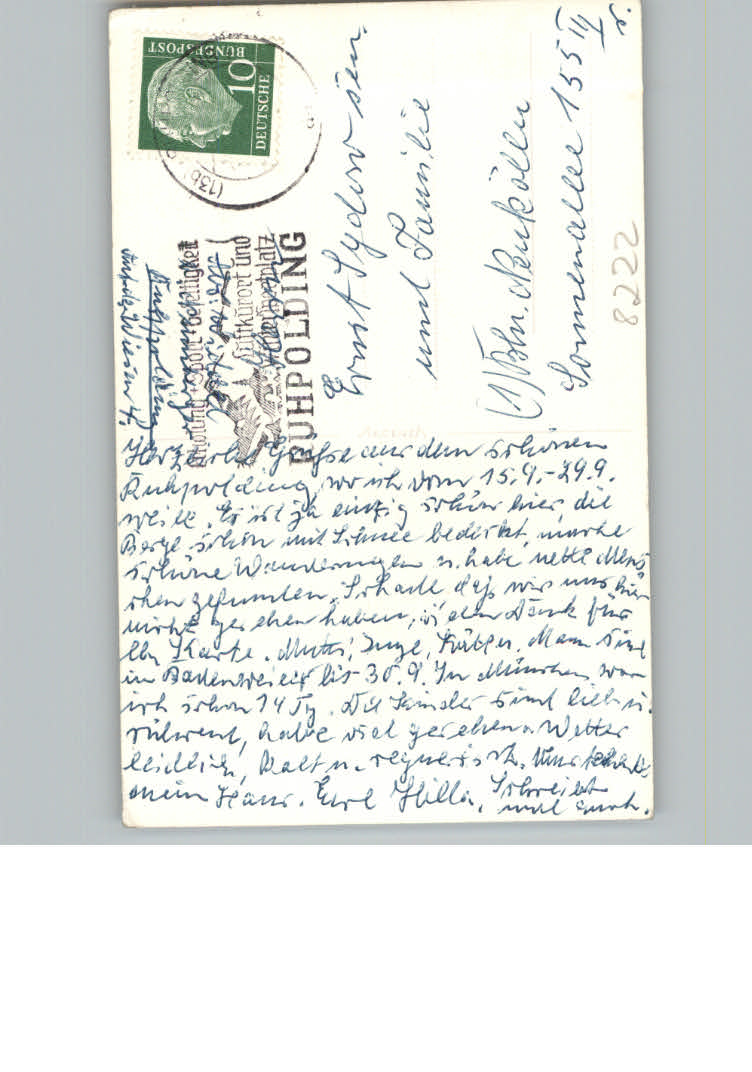 DEUTSCHE
BUNDESPOST
10
(13b)
Erholung Sport Geselligkeit
Luftkurort und
Wintersportplatz
RUHPOLDING
Ruhpolding
Ernst Sydow sen.
und Familie
(1) Bln. Neukölln
Sonnenallee 155 IV
r.
8222
Herzliche Grüsse aus dem schönen
Ruhpolding, wo ich vom 15.9.-29.9.
weile. Es ist ja einzig schön hier, die
Berge schon mit Schnee bedeckt, mache
schöne Wanderungen u. habe nette Mens
chen gefunden. Schade daß wir uns hier
nicht gesehen haben, Dank für
Karte. Mutti, Inge, Mann sind
in Badenweiler bis 30.9. In München war
ich schon 14 Tg. Die Kinder sind lieb u.
rührend, habe viel gesehen. Wetter
leidlich, kalt u. regnerisch.
mein Haus. Eure Hilla. Schreibt
mal auch.